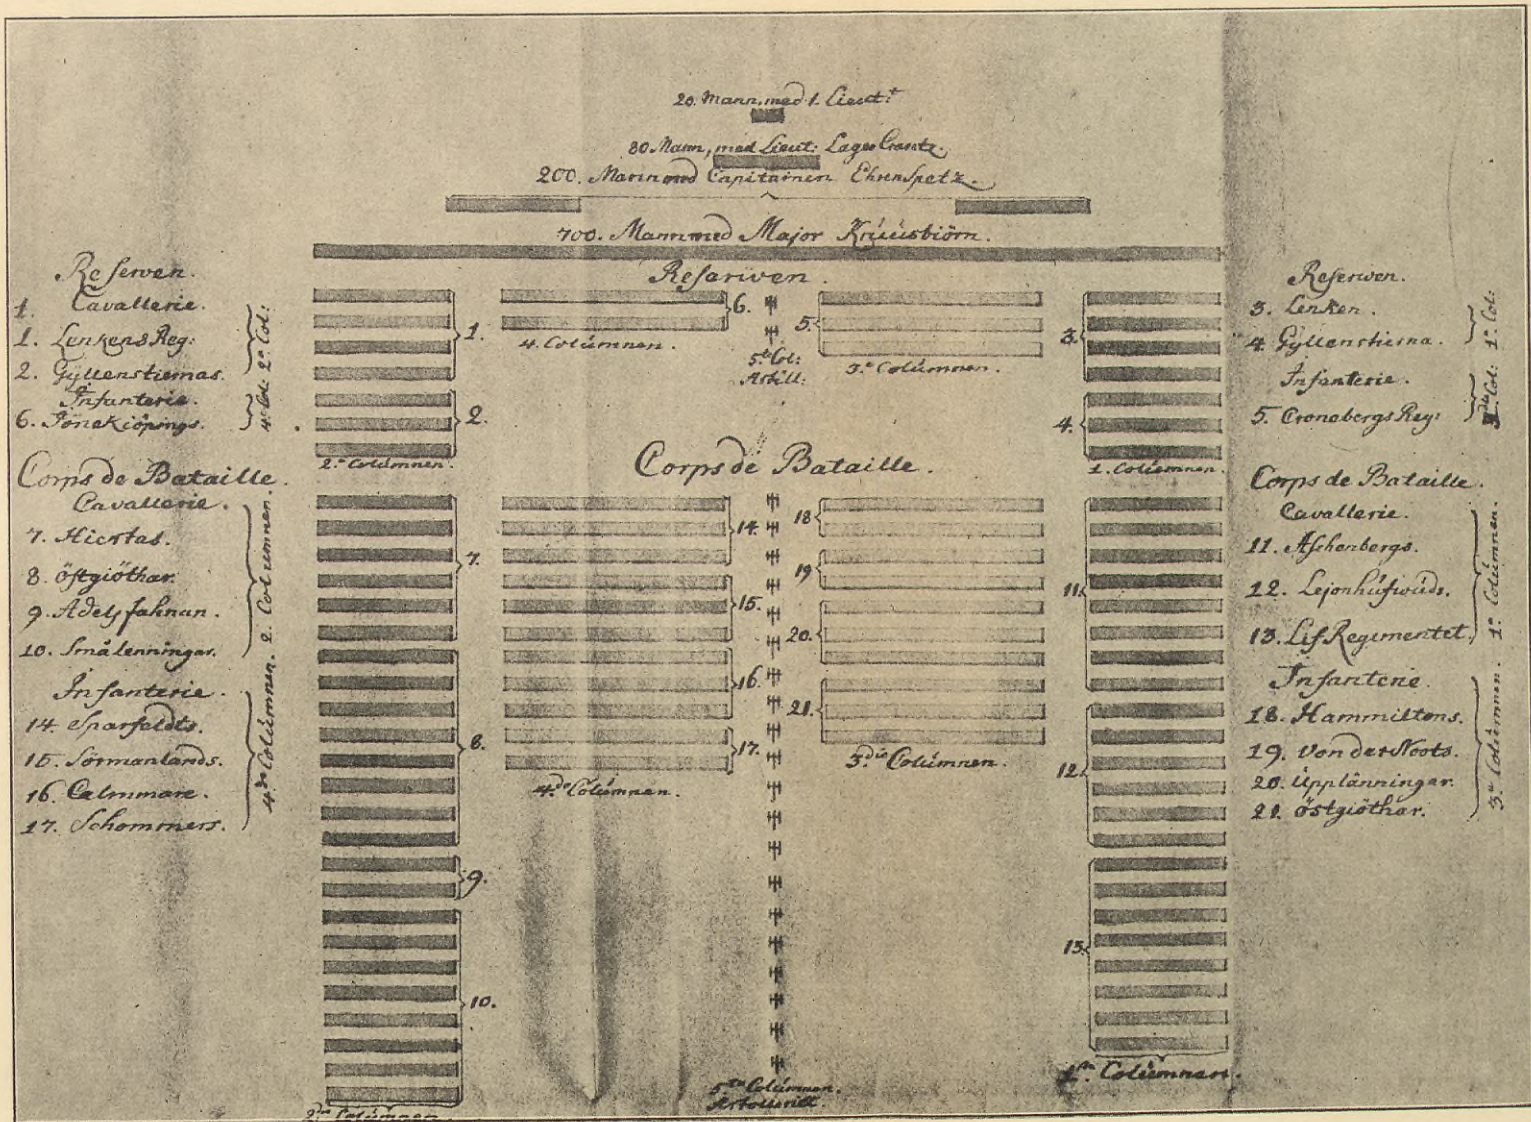 20. Mann, med 1. Lieut:t
80 Mann, med Lieut: LagerCrantz.
200. Mann med Capitainen Ehrenspetz.
700. Mann med Major Krúúsbiörn.
Reserven.
1. Cavallerie.
1. Lenkens Reg:
2. Gyllenstiernas.
2.n Col:
Infanterie.
6. Jönekiöpings.
4. Col:
Corps de Bataille.
Cavallerie.
7. Hiertas.
8. östgiöthar.
9. Adels fahnan.
10. Smålenningar.
2. Columnen.
Infanterie.
14. Sparfeldts.
15. Sörmanlands.
16. Calmmare.
17. Schommers.
4.de Colúmnen.
Resarwen.
1.
2.
2.n Colúmnen.
6.
4. Colúmnen.
5.te Col:
Artill:
5.
3.e Colúmnen.
3.
4.
1. Columnen.
Corps de Bataille.
7.
8.
9.
10.
2.dn Colúmnen
14.
15.
16.
17.
4.de Colúmnen.
18
19
20.
21.
3.die Colúmnen.
5.te Colúmnen.
Artolleriet.
11.
12.
13.
1.sn Colúmnen.
Reserwen.
3. Lenken.
4. Gyllenstierna.
1.e Col:
Infanterie.
5. Cronebergs Reg:
3.die Col:
Corps de Bataille.
Cavallerie.
11. Aschenbergs.
12. Lejonhúfwúds.
13. Lif Regimentet.
1.e Colúmnen.
Infanterie.
18. Hammiltons.
19. Von der Noots.
20. Upplänningar.
21. östgiöthar.
3.e Colúmnen.